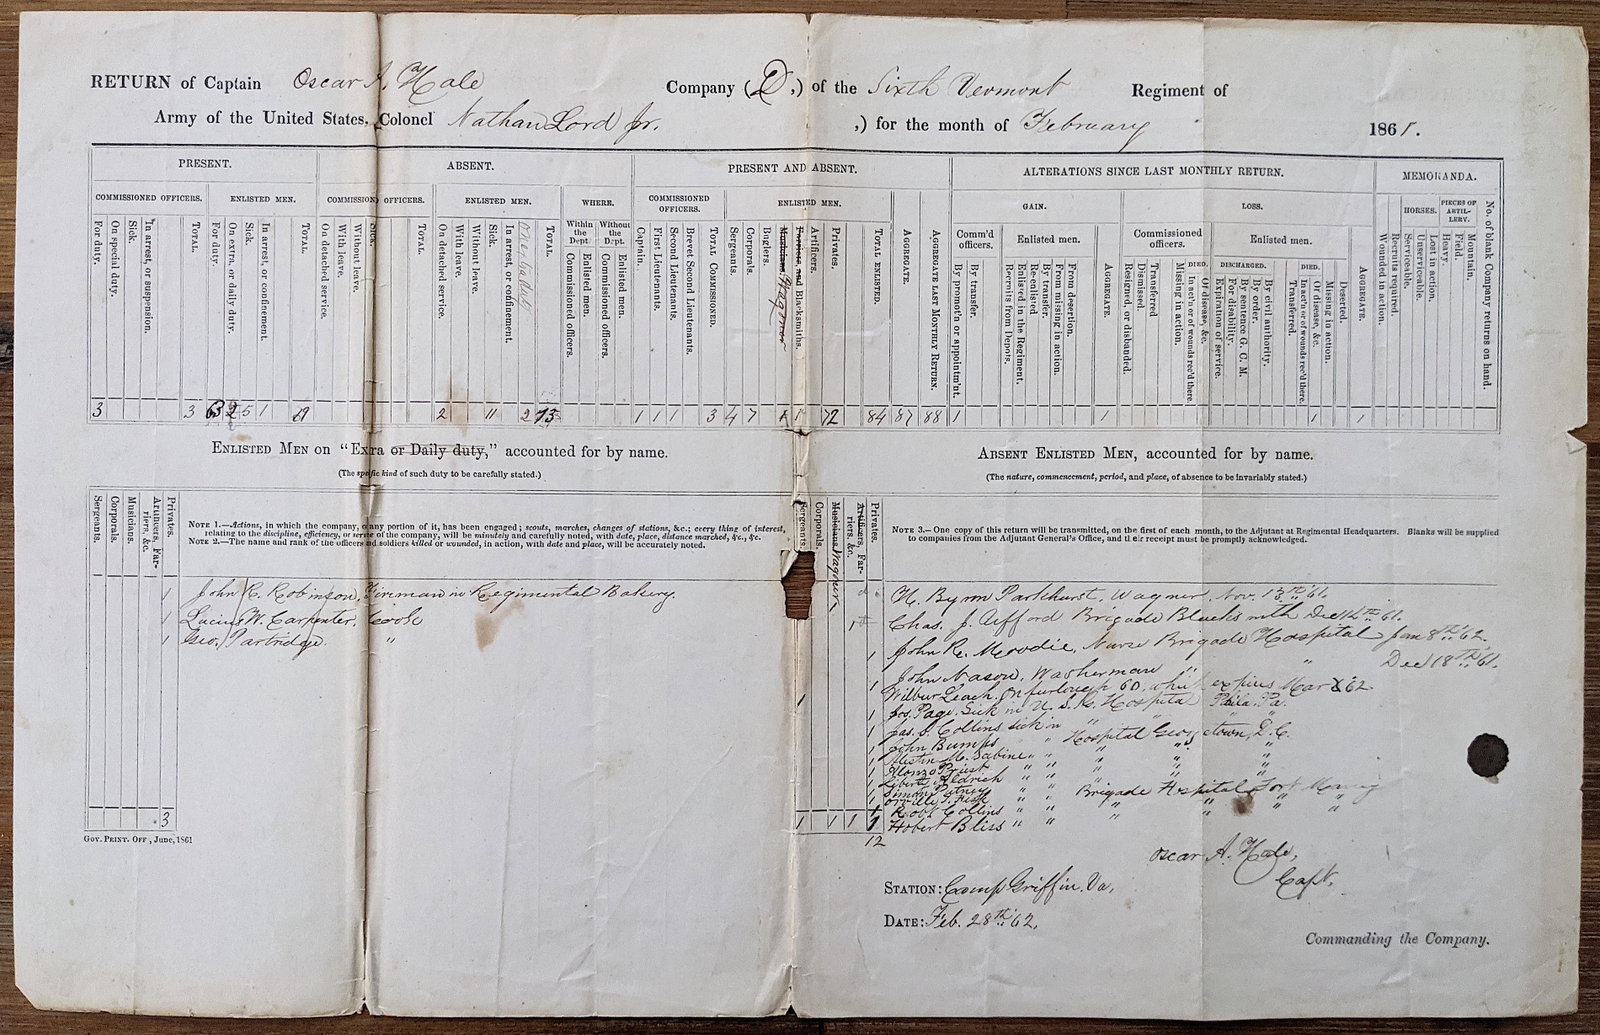 RETURN of Captain Oscar A. Hale Company (D,) of the Sixth Vermont Regiment of
Army of the United States, Colonel Nathan Lord Jr. ,) for the month of February 186
PRESENT. ABSENT. PRESENT AND ABSENT. ALTERATIONS SINCE LAST MONTHLY RETURN. MEMORANDA.
COMMISSIONED OFFICERS. ENLISTED MEN. COMMISSION OFFICERS. ENLISTED MEN. WHERE. COMMISSIONED OFFICERS. ENLISTED MEN. GAIN. LOSS. HORSES. PIECES OF ARTILLERY.
Within the Dept. Without the Dept. Comm'd officers. Enlisted men. Commissioned officers. Enlisted men.
DIED. DISCHARGED. DIED.
For duty.
On special duty.
Sick.
In arrest, or suspension.
TOTAL.
For duty.
On extra or daily duty.
Sick.
In arrest, or confinement.
TOTAL.
On detached service.
With leave.
Without leave.
Sick.
TOTAL.
On detached service.
With leave.
Without leave.
Sick.
In arrest, or confinement.
TOTAL.
Commissioned officers.
Enlisted men.
Commissioned officers.
Enlisted men.
Captain.
First Lieutenants.
Second Lieutenants.
Brevet Second Lieutenants.
TOTAL COMMISSIONED.
Sergeants.
Corporals.
Buglers.
Musicians. Wagoner
Farriers, and Blacksmiths.
Artificers.
Privates.
TOTAL ENLISTED.
AGGREGATE.
AGGREGATE LAST MONTHLY RETURN.
By promot'n or appointm'nt.
By transfer.
Recruits from Depots.
Enlisted in the Regiment.
Re-enlisted
By transfer.
From missing in action.
From desertion.
AGGREGATE.
Resigned, or disbanded.
Dismissed.
Transferred
Missing in action.
In act'n or of wounds rec'd there.
Of disease, &c.
Expiration of service.
For disability.
By sentence G. C. M.
By order.
By civil authority.
Transferred.
In act'n or of wounds rec'd there.
Of disease, &c.
Missing in action.
Deserted.
AGGREGATE.
Wounded in action.
Recruits required.
Serviceable.
Unserviceable.
Lost in action.
Heavy.
Field.
Mountain.
No. of blank Company returns on hand.
3 3 5 1 2 11 2 1 1 1 3 4 7 1 72 84 87 88 1 1 1 1
ENLISTED MEN ON "Extra or Daily duty," accounted for by name.
(The specific kind of such duty to be carefully stated.)
ABSENT ENLISTED MEN, accounted for by name.
(The nature, commencement, period, and place, of absence to be invariably stated.)
Sergeants.
Corporals.
Musicians.
Artificers, Farriers, &c.
Privates.
NOTE 1.—Actions, in which the company, or any portion of it, has been engaged; scouts, marches, changes of stations, &c.; every thing of interest,
relating to the discipline, efficiency, or service of the company, will be minutely and carefully noted, with date, place, distance marched, &c., &c.
NOTE 2.—The name and rank of the officers and soldiers killed or wounded, in action, with date and place, will be accurately noted.
Sergeants.
Corporals.
Musicians. Wagoner
Artificers, Farriers, &c.
Privates.
NOTE 3.—One copy of this return will be transmitted, on the first of each month, to the Adjutant at Regimental Headquarters. Blanks will be supplied
to companies from the Adjutant General's Office, and their receipt must be promptly acknowledged.
1 John C. Robinson, Fireman in Regimental Bakery.
1 Lucius W. Carpenter, Cook
1 Geo. Partridge. "
3
GOV. PRINT. OFF, June, 1861
H. Byron Parkhurst, Wagner, Nov. 13th '61.
1 Chas. J. Afford Brigade Blacksmith Dec 14th 61.
1 John R. Moodie, Nurse Brigade Hospital Jan 8th '62.
1 John Nason, Washerman " " Dec 18th '61.
1 Wilbur Leach, On furlough 60, which expires Mar 8 '62
1 Jos. Page. Sick in U. S. G. Hospital Phila. Pa.
1 Jas. S. Collins sick in " " "
1 John Bumps " Hospital Georgetown, D.C.
1 Austin M. Sabine " " " " "
1 Alonzo Priest " " " " "
1 Liberty Aldrich " " " " "
1 Simon Putney " "
1 Orville J. Fisk " " Brigade Hospital Fort
1 Robt Collins " " " " " "
1 1 1 Hobert Bliss " "
12
Oscar A. Hale,
Capt.
STATION: Camp Griffin. Va,
DATE: Feb. 28th '62,
Commanding the Company.